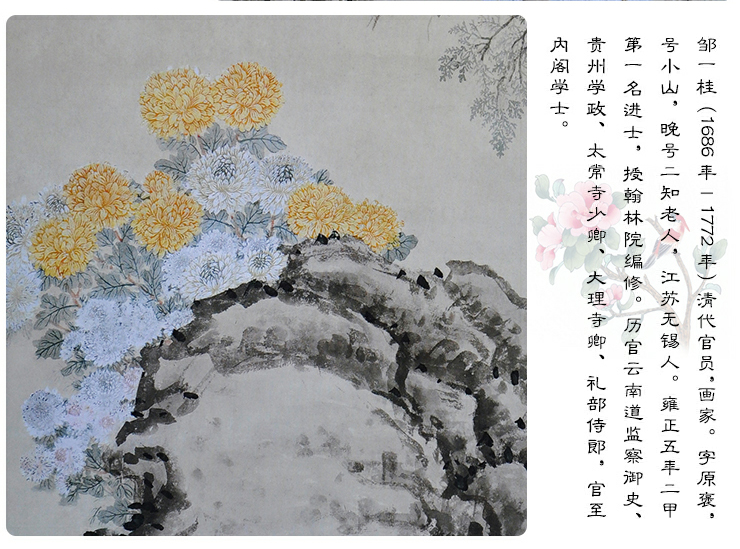 邹一桂（1686年－1772年）清代官员，画家。字原褒，
号小山，晚号二知老人，江苏无锡人。雍正五年二甲
第一名进士，授翰林院编修。历官云南道监察御史、
贵州学政、太常寺少卿、大理寺卿、礼部侍郎，官至
内阁学士。